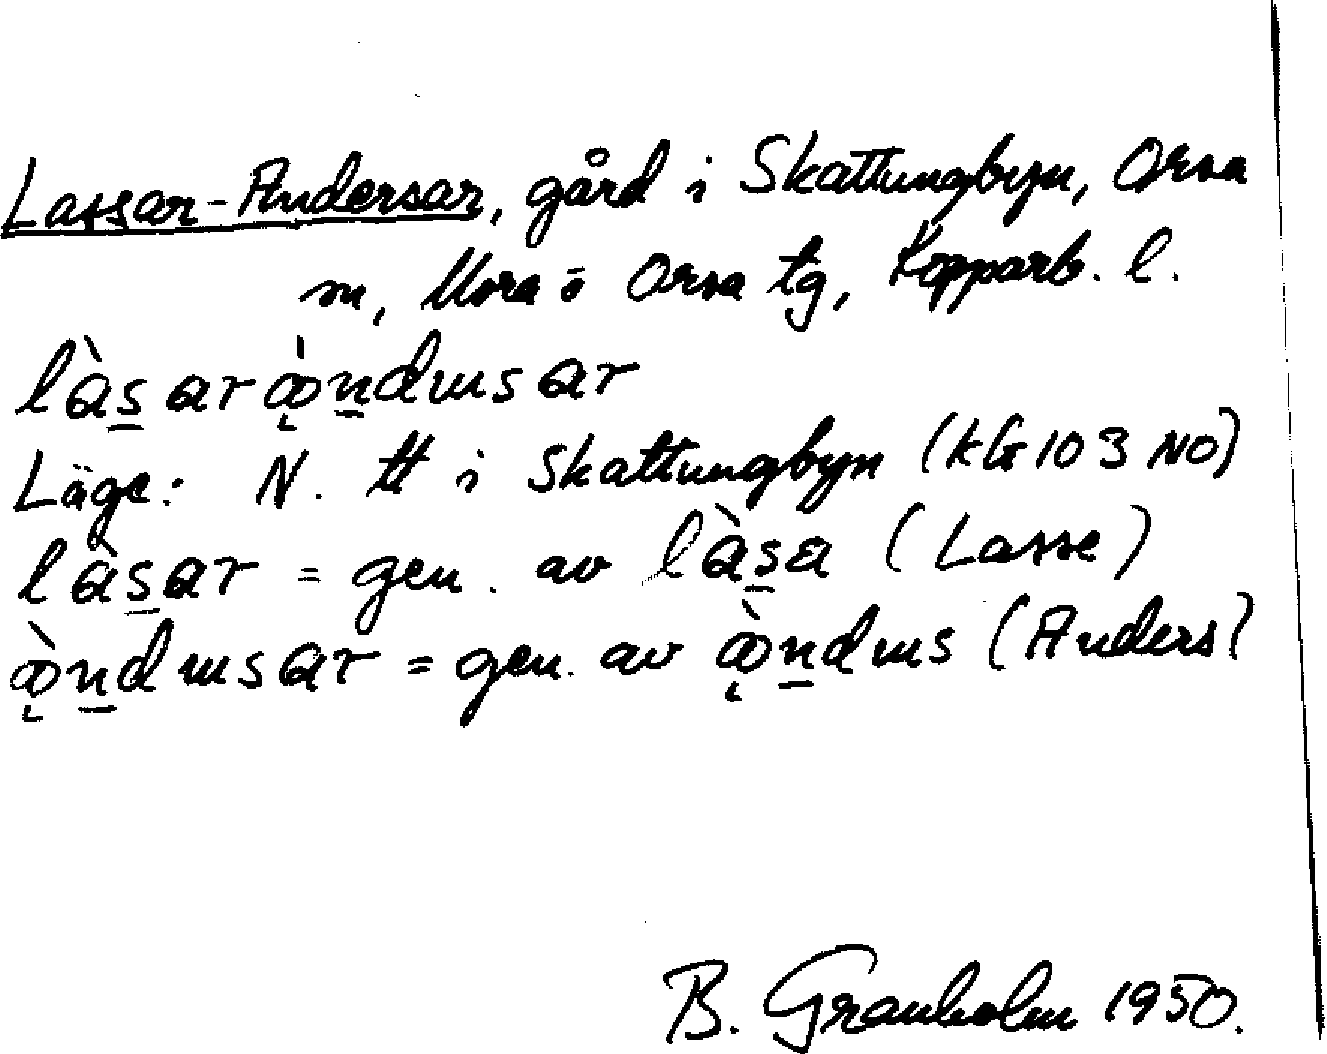 Lassar-Andersar, gård i Skattungbyn, Orsa
sn, Mora o Orsa tg, Kopparb. l.
làs̲ar ɑ̨̀n̲dɯsar
Läge: N. tt i Skattungbyn (kG 103 NO)
làs̲ar = gen. av làs̲a (Lasse)
ɑ̨̀n̲dɯsar = gen. av ɑ̨̀n̲dɯs (Anders)
B. Granholm 1950.